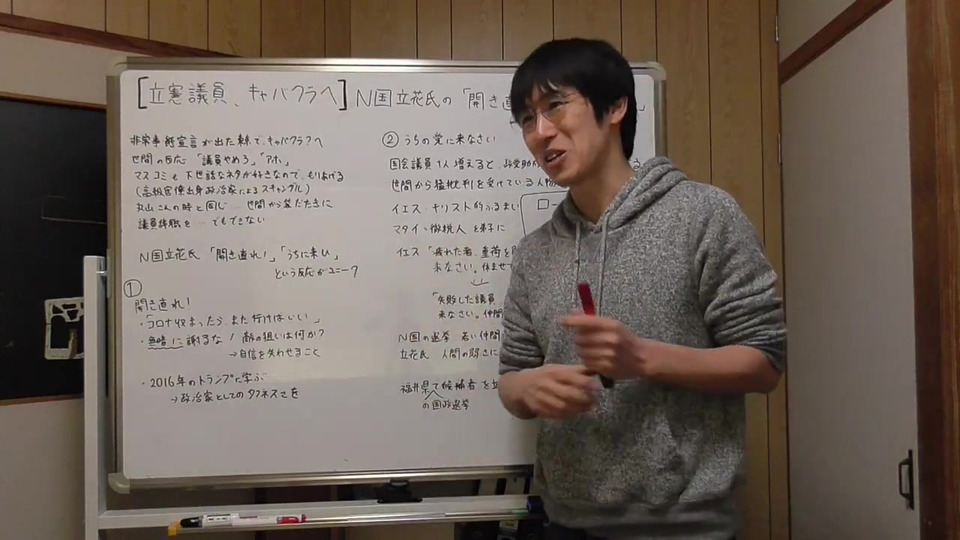 [立憲議員、キャバクラへ] N国立花氏の「開き
非常事態宣言が出た東で、キャバクラへ
世間の反応「議員やめろ」「アホ」
マスコミも下世話なネタが好きなので、もりあげる
(高級官僚出身政治家によるスキャンダル)
丸山さんの時と同じ…世間から袋だたきに
議員辞職を…でもできない
N国立花氏「開き直れ!」「うちに来い」
という反応がユニーク
①
開き直れ!
・「コロナ収まったら、また行けばいい」
・無暗に謝るな! 敵の狙いは何か?
→自信を失わせること
・2016年のトランプに学ぶ
→政治家としてのタフネスさを
② うちの党に来なさい
国会議員1人増えると、政党助
世間から猛批判を受けている人物
イエス・キリスト的ふるまい
マタイ…徴税人を弟子に
イエス「疲れた者、重荷を
来なさい。休ませて
「失敗した議員
来なさい。仲間
N国の選挙 若い仲間
立花氏 人間の弱さに
福井県で候補者を立
の国政選挙